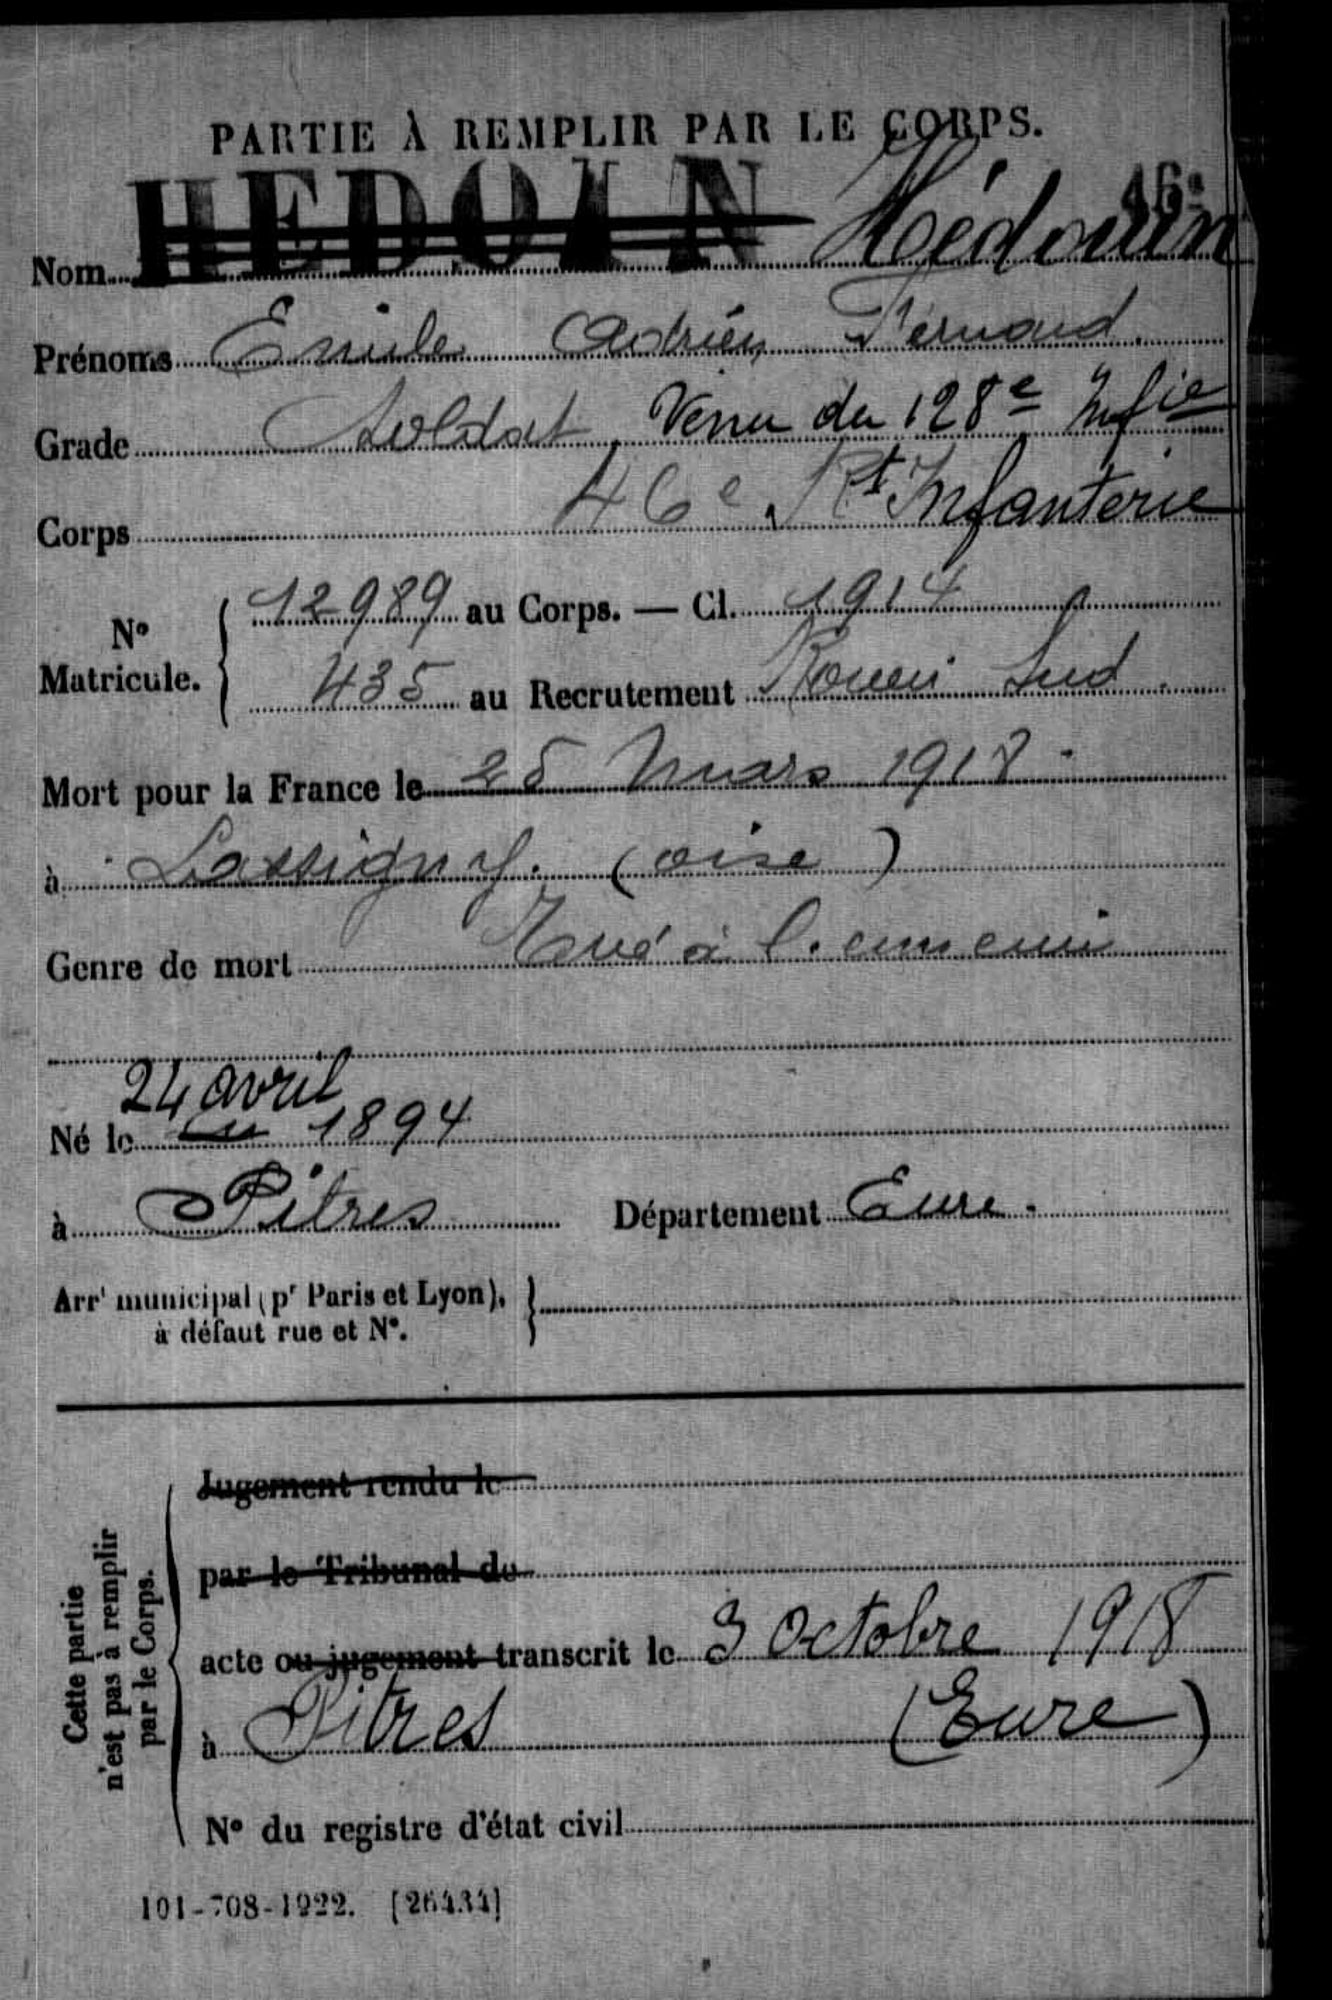 PARTIE À REMPLIR PAR LE CORPS.
46e
Nom HEDOIN Hédouin
Prénoms Emile Adrien Fernand.
Grade Soldat Venu du 128e Infie
Corps 46e Rt Infanterie
No Matricule. 12989 au Corps. — Cl. 1914
435 au Recrutement Rouen Sud.
Mort pour la France le 25 Mars 1918.
à Lassigny. (oise)
Genre de mort Tué à l'ennemi
24 avril
Né le en 1894
à Pitres Département Eure.
Arrt municipal (pr Paris et Lyon),
à défaut rue et No.
Cette partie
n'est pas à remplir
par le Corps.
Jugement rendu le
par le Tribunal de
acte ou jugement transcrit le 3 Octobre 1918
à Pitres (Eure)
No du registre d'état civil
101-708-1922. [26434]